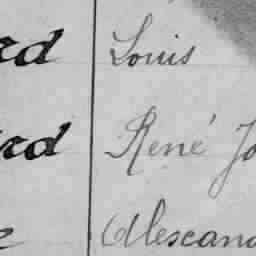 rd Louis
rd René Jo
e Alexand